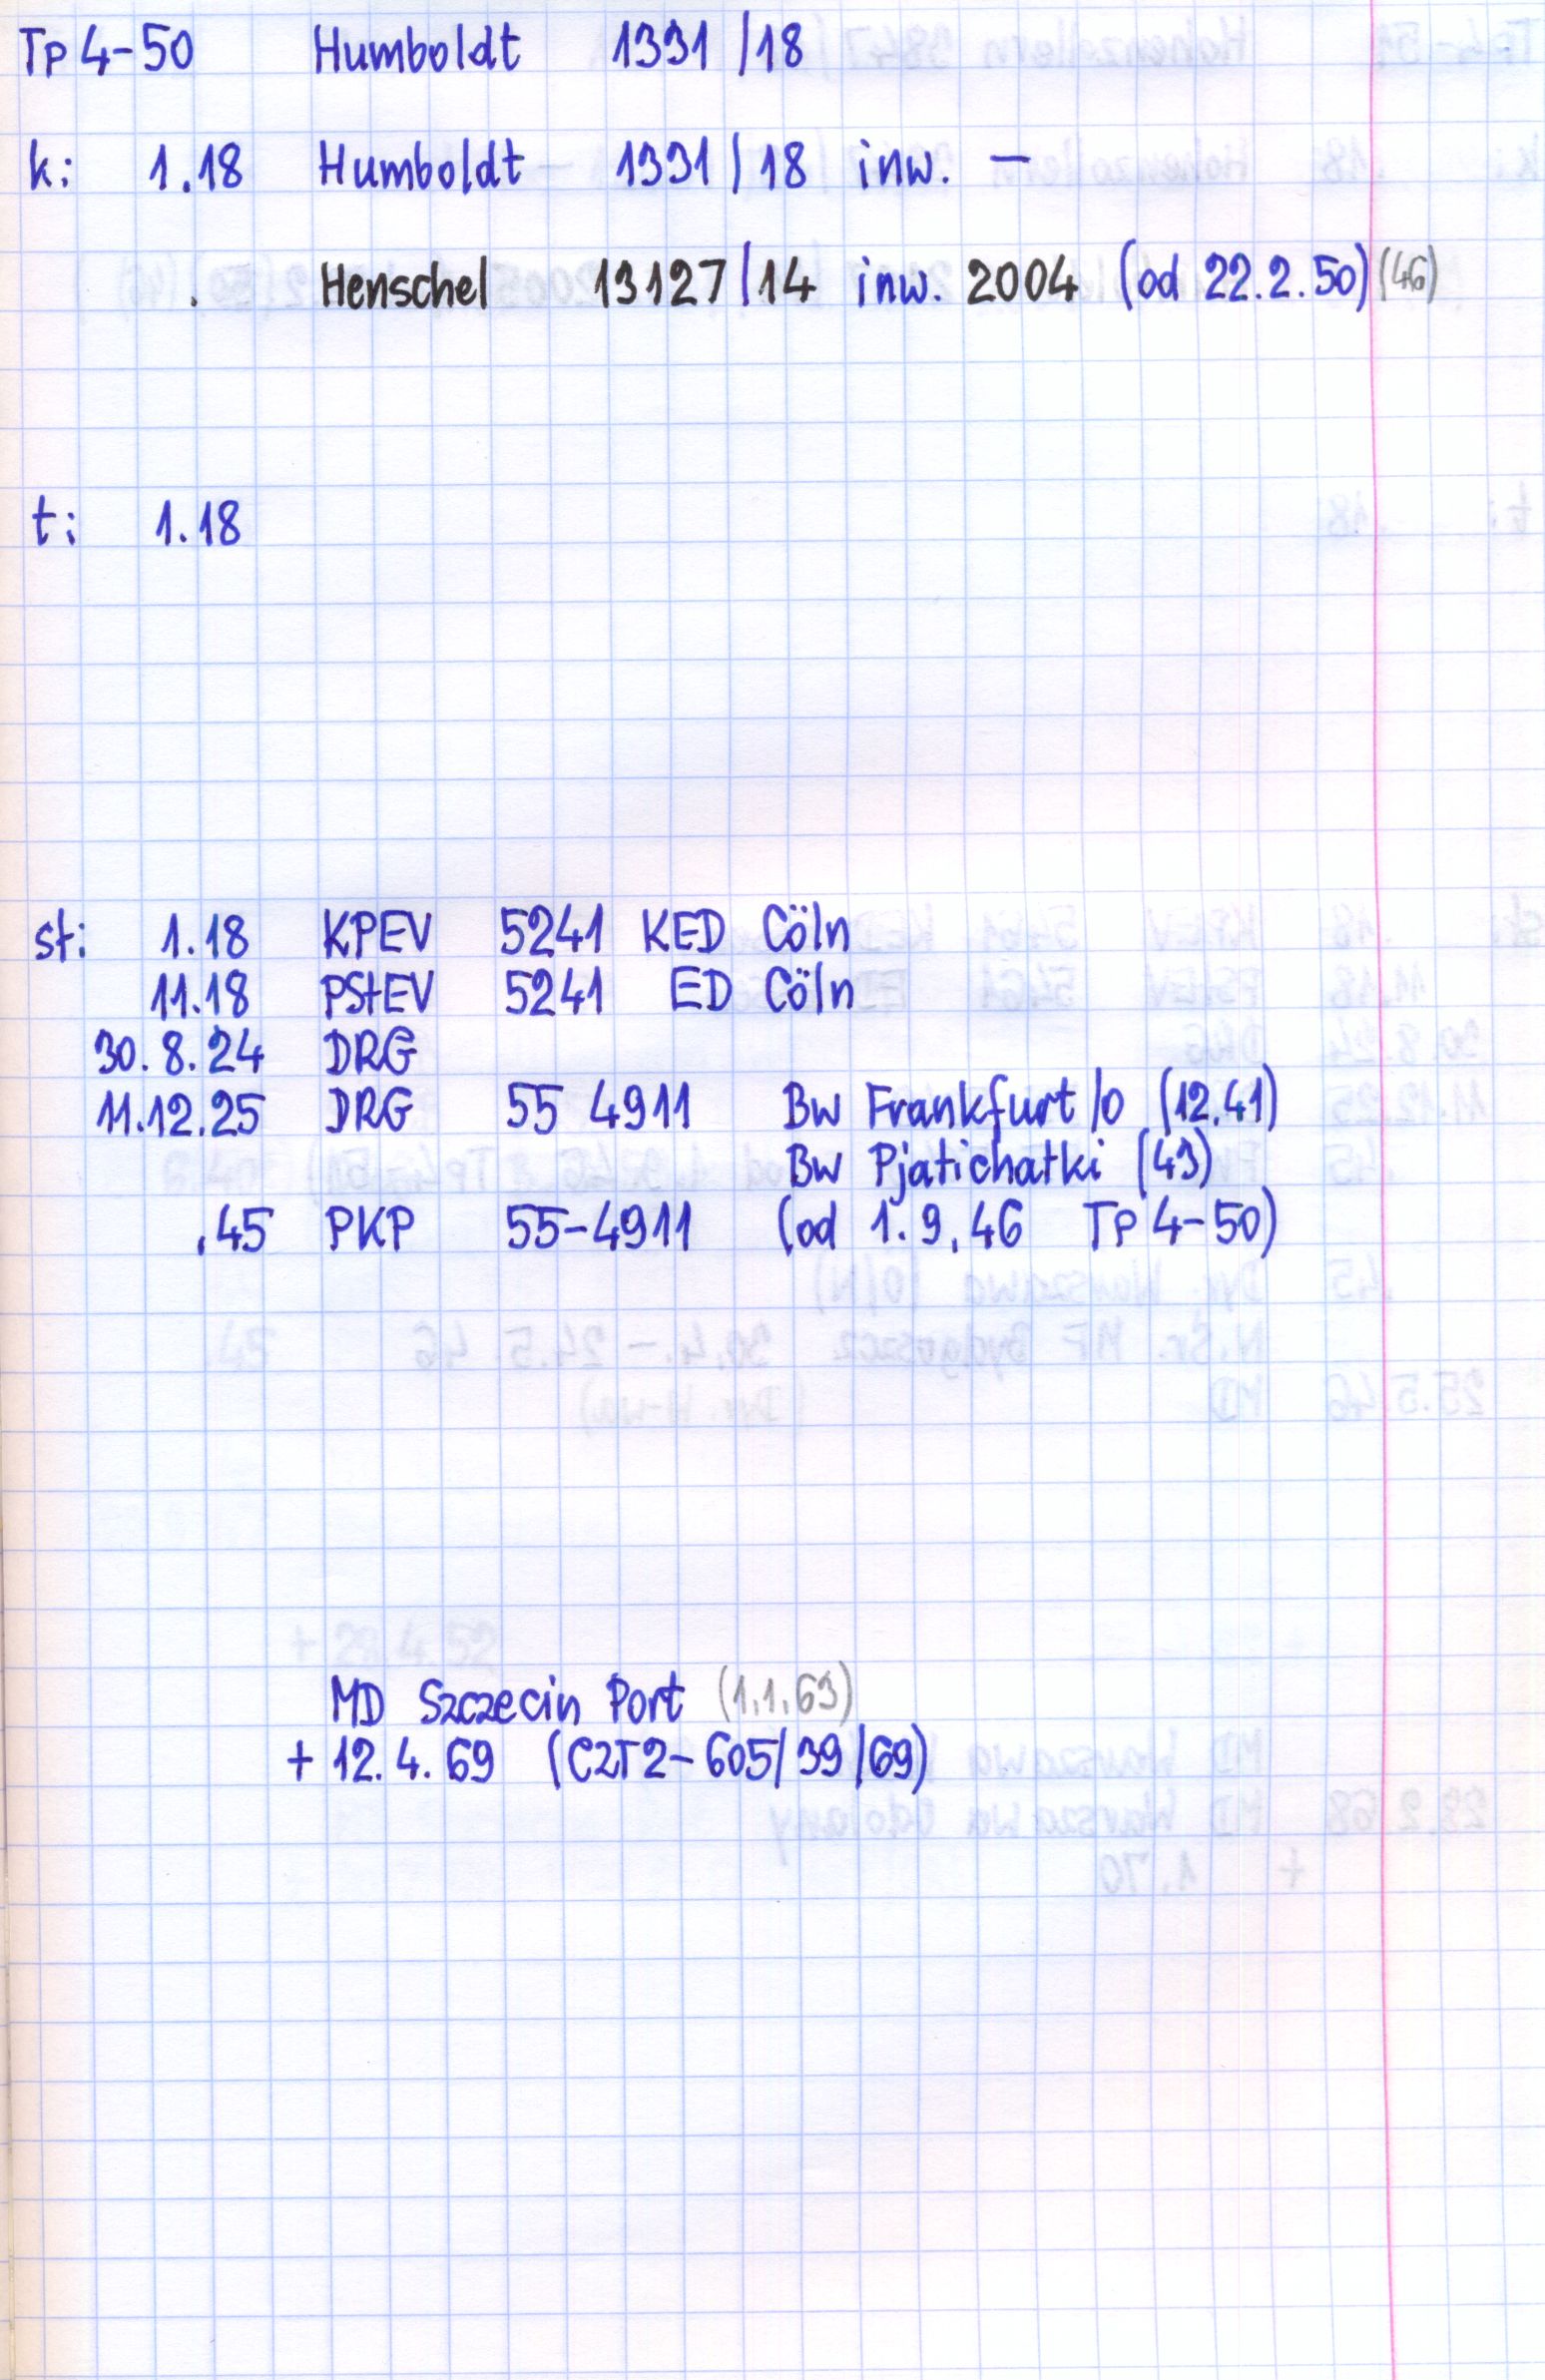 Tp 4-50 Humboldt 1331/18
k: 1.18 Humboldt 1331/18 inw. –
. Henschel 13127/14 inw. 2004 (od 22.2.50) (46)
t: 1.18
st: 1.18 KPEV 5241 KED Cöln
11.18 PStEV 5241 ED Cöln
30.8.24 DRG
11.12.25 DRG 55 4911 Bw Frankfurt/O (12.41)
Bw Pjatichatki (43)
.45 PKP 55-4911 (od 1.9.46 Tp 4-50)
MD Szczecin Port (1.1.63)
+ 12.4.69 (CZT2-605/39/69)